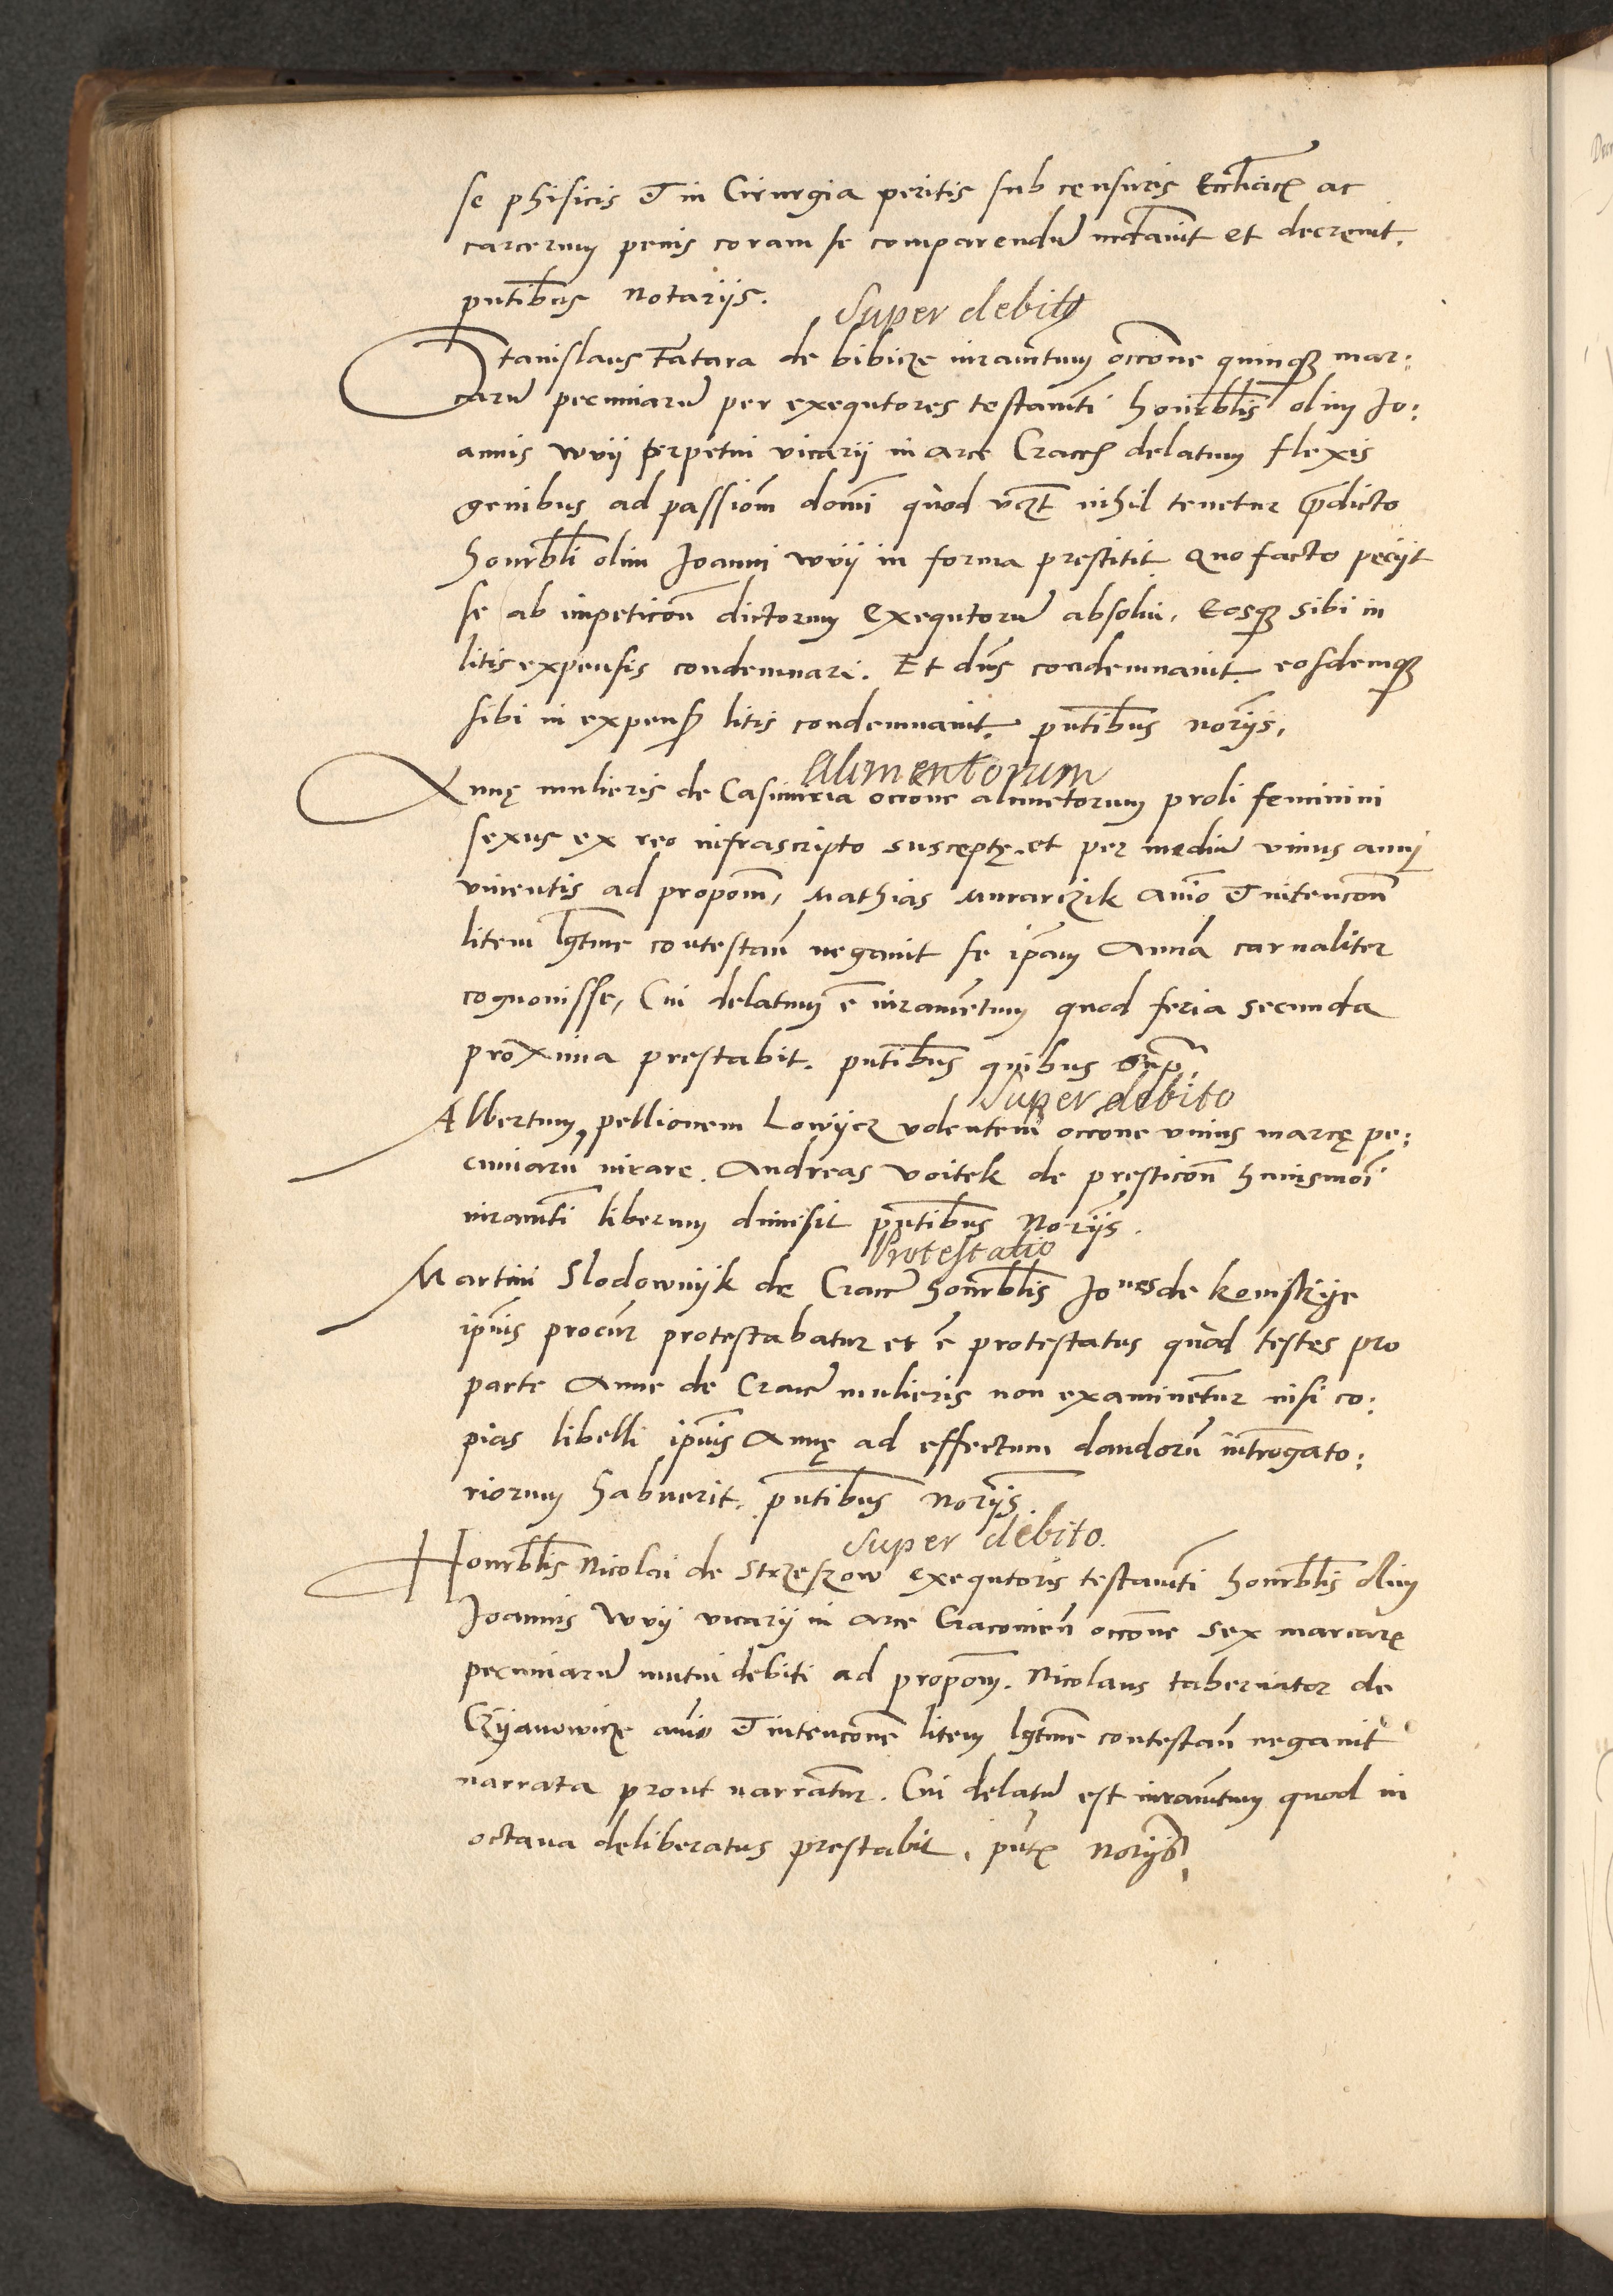 se phisicis et in Cirurgia peritis sub censuris Eccl̄iacis ac
carcerum penis coram se comparendū mādavit et decrevit.
pn̄tibus Notarijs.
Super debito
Stanislaus Tatara de bibicze iuramn̄tum occōne quinq̧ mar:
carū pecuniarū per exequtores testamn̄ti honorb̄lis olim Jo:
annis wvij perpetui vicarij in arce Cracov̄ delatum flexis
genibus ad passiōm domī quod vcz̄ nihil tenetur p̄dicto
honorb̄li olim Joanni wvij in forma prestitit. Quo facto petijt
se ab impeticōn dictorum Exequtorū absolvi, Eosq̧ sibi in
litis expensis condemnari. Et dn̄s condemnavit. eosdemq̧
sibi in expens̄ litis condemnavit. pn̄tibus nor̄ijs,
Alimentorum
Annę mulieris de Casimiria occone alimētorum proli feminini
sexus ex reo infrascripto susceptę et per mediū unius anni
viventis ad propom̄, Mathias Murarczik an̄io et intencōn
litem lgt̄me contestan̄ negavit se ip̄am Annā carnaliter
cognovisse, Cui delatum ē iuramētum quod feria secunda
proxima prestabit. pn̄tibus quibus sup̄.
Super debito
Albertum pellionem Lowijcz volentem occone unius marcę pe:
cuniarū iurare. Andreas Voitek de presticōn huiusmōi
iuramn̄ti liberum dimisit pn̄tibus Nor̄ijs.
Protestatio
Martini Slodownijk de Cracov̄ honorb̄lis Jon̄es de konijskije
ip̄ius procur̄ protestabatur et ē protestatus quod testes pro
parte Anne de Cracov̄ mulieris non examinētur nisi co:
pias libelli ip̄ius Annę ad effectum dandorū int̄rogato:
riorum habuerit. pn̄tibus Nor̄ijs.
Super debito.
Honorb̄lis Nicolai de Strzeszow exequtoris testamn̄ti honorb̄lis olim
Joannis Wvij vicarij in arce Cracovien̄ occōne sex marcarę
pecuniarū mutui debiti ad propom̄. Nicolaus tabernator de
Czijanowicze an̄io et intencōne litem lgt̄me contestan̄ negavit
narrata prout narrātur. Cui delatū est iuramn̄tum quod in
octava deliberatus prestabit, pn̄t̄ Nor̄ijs,